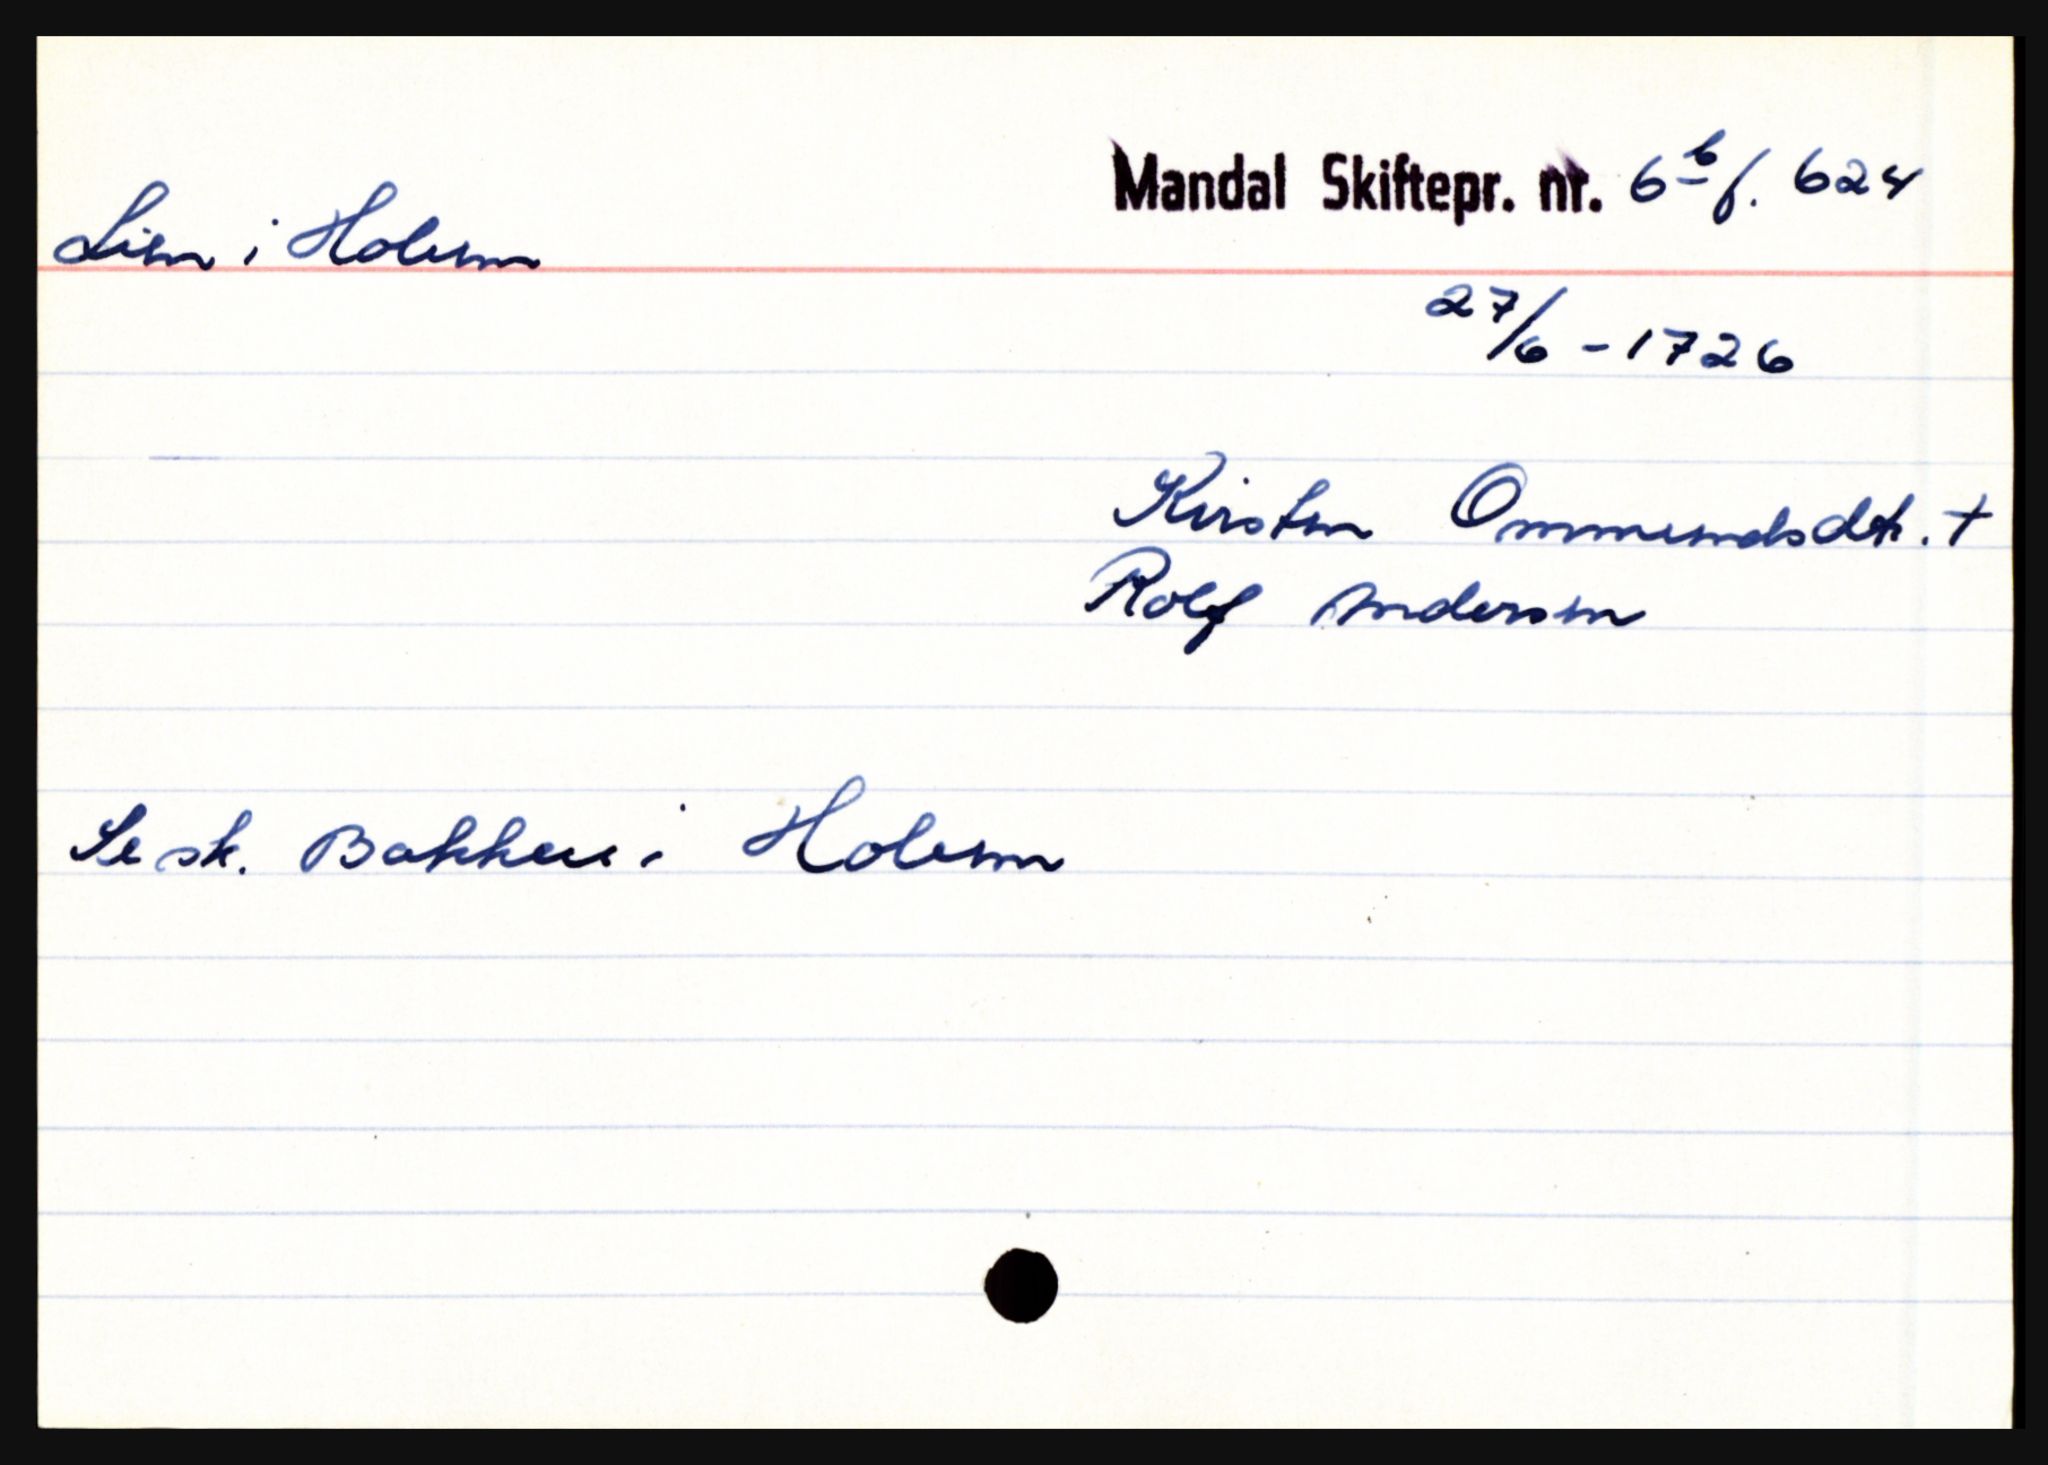 Mandal Skiftepr. nr. 6b f. 624
Lien i Holum
27/6 - 1726
Kirsten Ommundsdtr. +
Rolf Andersen
Se sk. Bakken i Holum